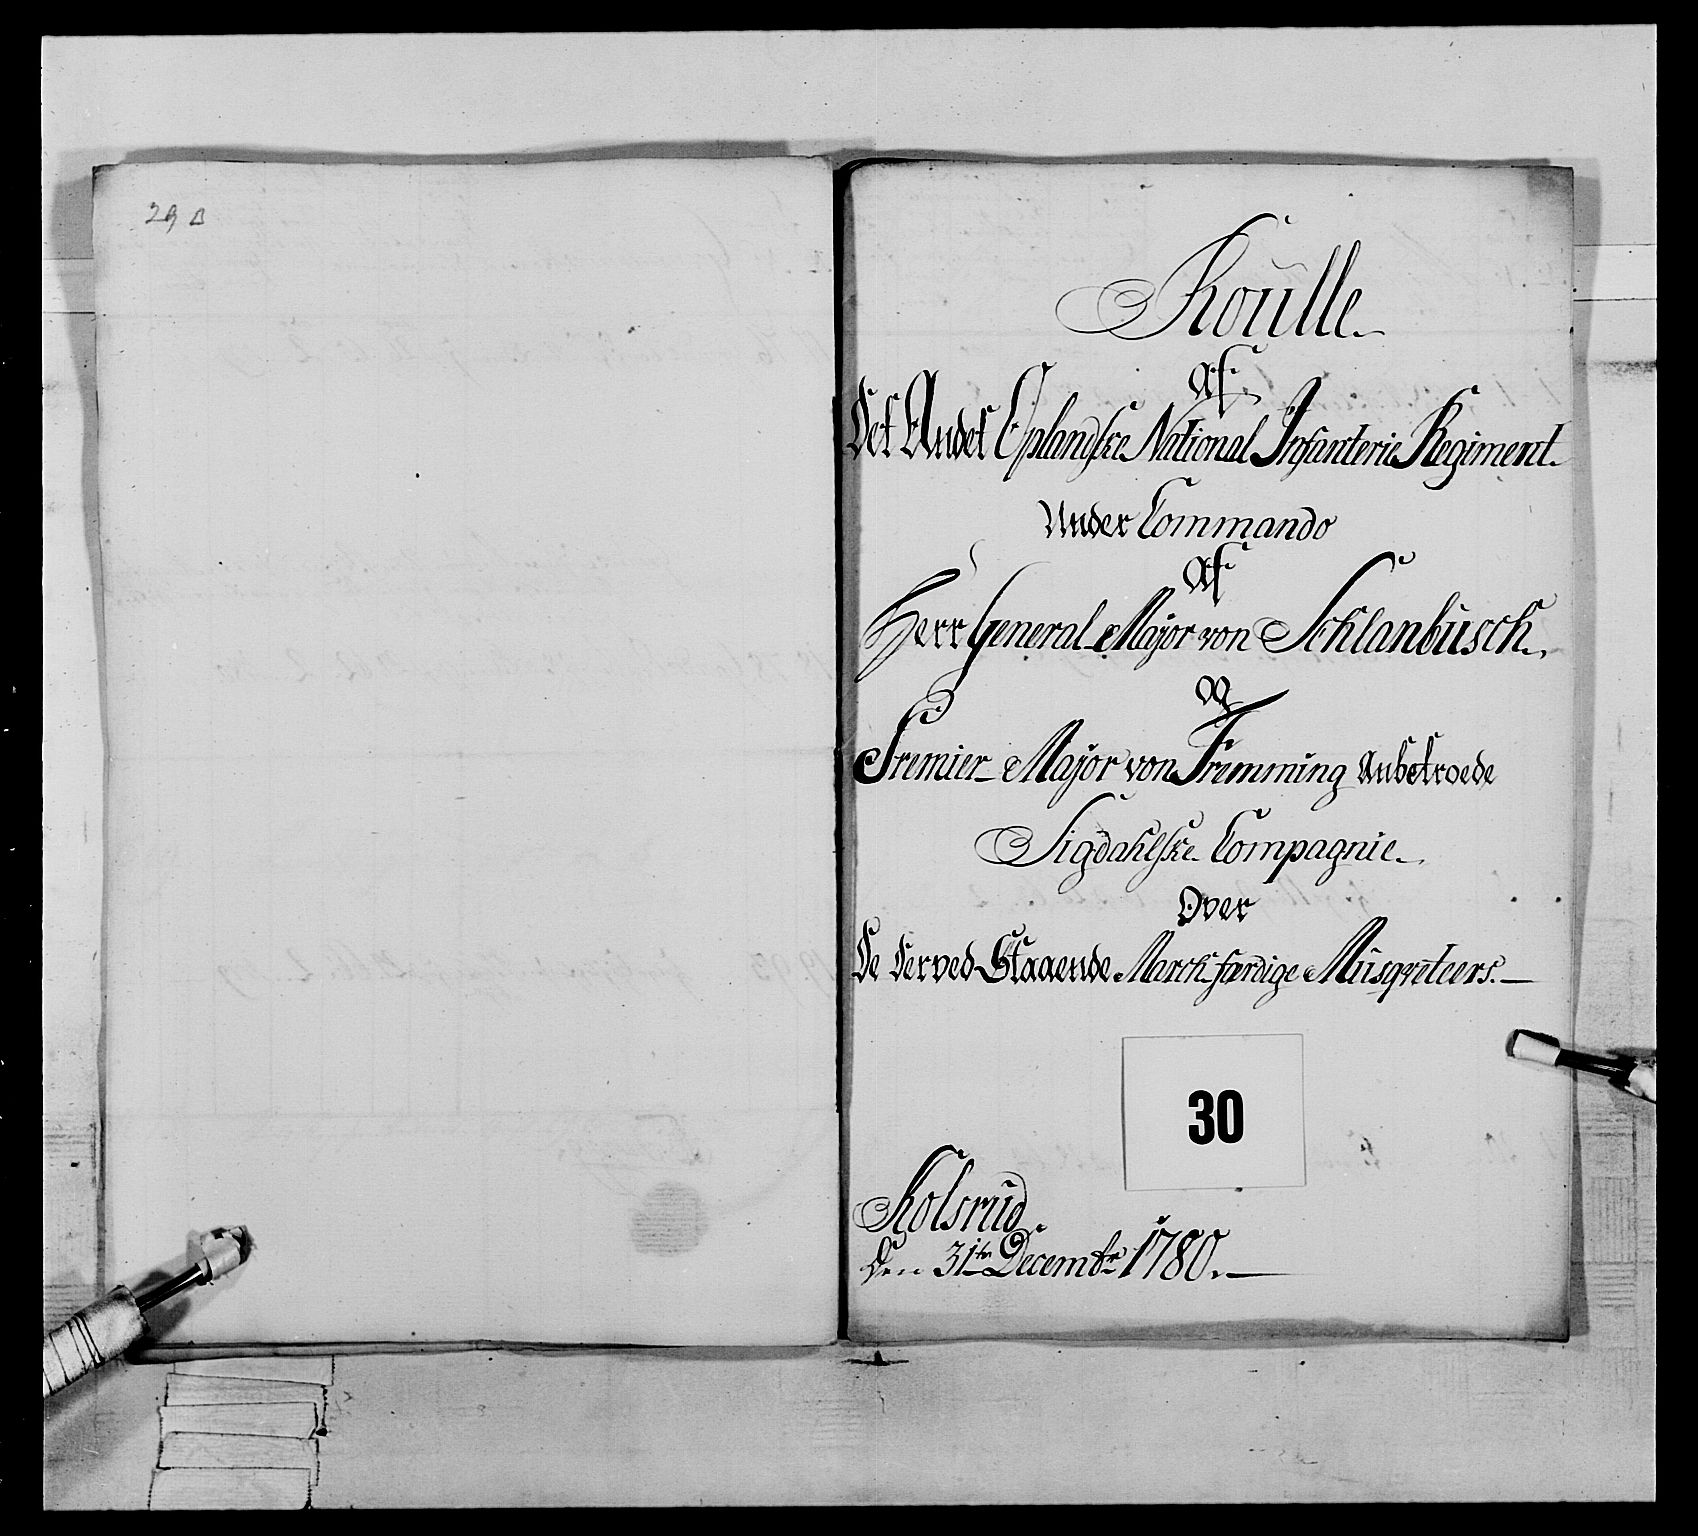 29 B
Roulle.
Af
Det Andet Oplandske National Infanterie Regiment.
Under Commando
Af
Herr General-Major von Schlanbusch.
og
Premier-Major von Fremming Anbetroede
Sigdahlske Compagnie.
Over
De Derved Staaende Marchfærdige Musqveteers.
30
Kolsrud
Den 31te Decembr 1780.